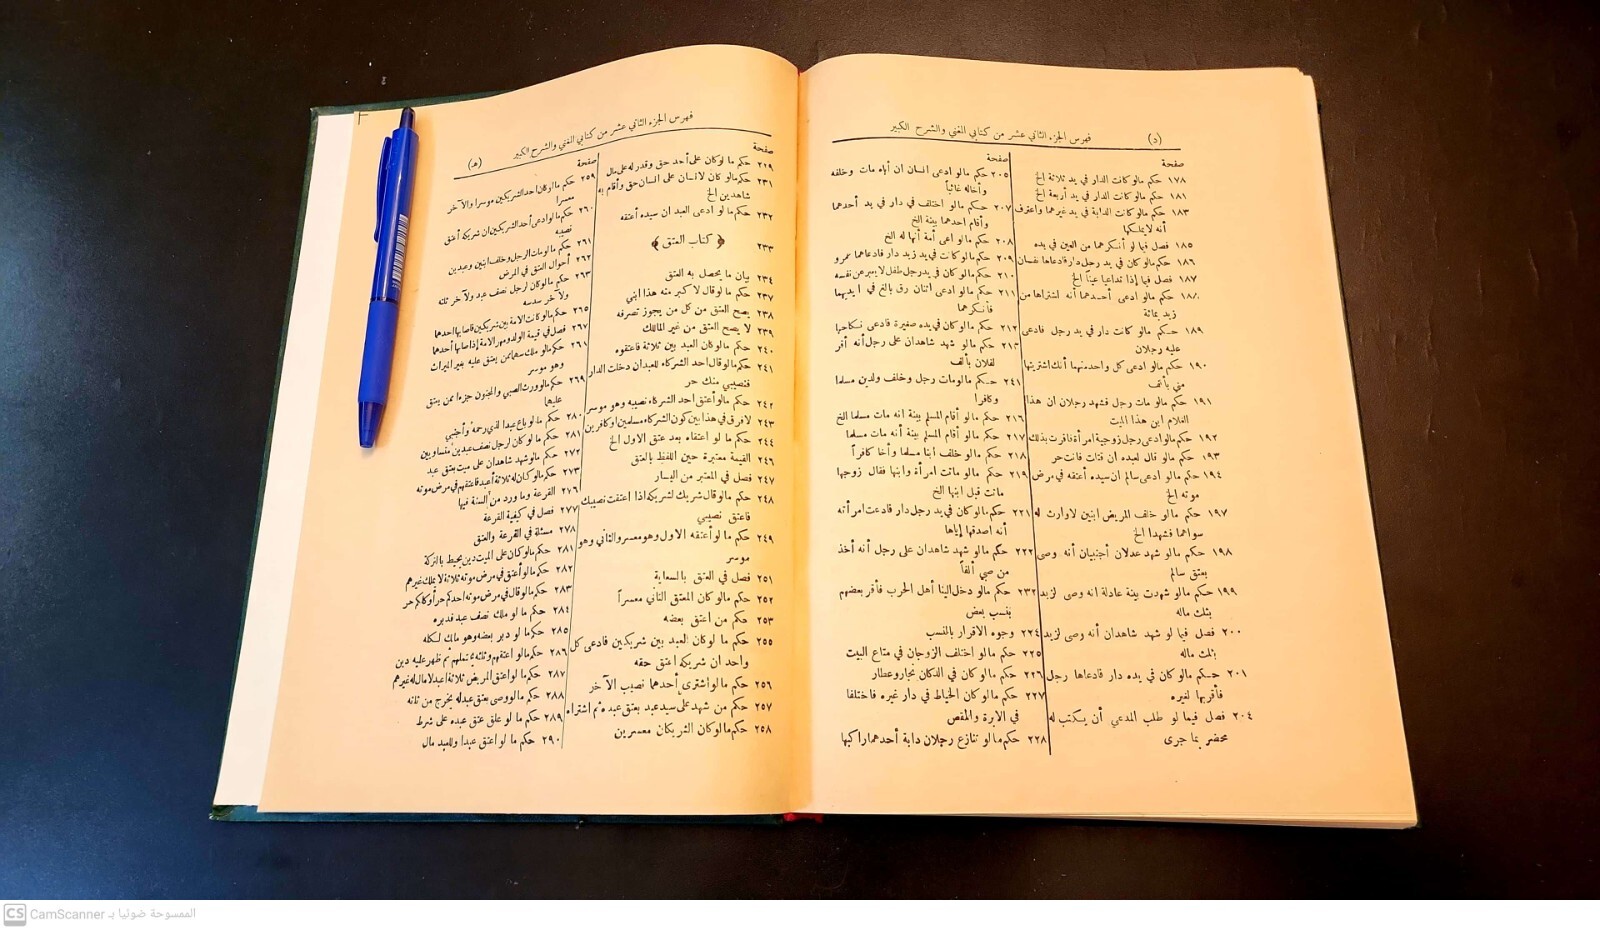 (د) فهرس الجزء الثاني عشر من كتابي المغني والشرح الكبير
صفحة
١٧٨ حكم مالو كانت الدار في يد ثلاثة الخ
١٨١ حكم مالو كانت الدار في يد أربعة الخ
١٨٣ حكم مالو كانت الدابة في يد غيرهما واعترف
أنه لايملكها
١٨٥ فصل فيما لو أنكرهما من العين في يده
١٨٦ حكم مالو كان في يد رجل دار فادعاها نفسان
١٨٧ فصل فيما إذا تداعيا عيناً الخ
حكم مالو ادعى أحدهما أنه اشتراها من
زيد بمائة
١٨٩ حكم مالو كانت دار في يد رجل فادعى
عليه رجلان
١٩٠ حكم مالو ادعى كل واحد منهما أنك اشتريتها
مني بألف
١٩١ حكم مالو مات رجل فشهد رجلان ان هذا
الغلام ابن هذا الميت
١٩٢ حكم مالو ادعى رجل زوجية امرأة فاقرت بذلك
١٩٣ حكم مالو قال لعبده ان قتلت فانت حر
١٩٤ حكم مالو ادعى سالم أن سيده أعتقه في مرض
موته الخ
١٩٧ حكم مالو خلف المريض ابنين لاوارث له
سواهما فشهدا الخ
١٩٨ حكم مالو شهد عدلان أجنبيان أنه وصى
بعتق سالم
١٩٩ حكم مالو شهدت بينة عادلة انه وصى لزيد
بثلث ماله
٢٠٠ فصل فيما لو شهد شاهدان أنه وصى لزيد
بثلث ماله
٢٠١ حكم مالو كان في يده دار فادعاها رجل
فأقر بها لغيره
٢٠٤ فصل فيما لو طلب المدعي أن يكتب له
محضر بما جرى
صفحة
٢٠٥ حكم مالو ادعى انسان ان أباه مات وخلفه
وأخاله غائباً
٢٠٧ حكم مالو اختلف في دار في يد أحدهما
وأقام احدهما بينة الخ
٢٠٨ حكم مالو ادعى أمة أنها له الخ
٢٠٩ حكم مالو كانت في يد زيد دار فادعاها عمرو
٢١٠ حكم مالو كان في يد رجل طفل لايعبر عن نفسه
٢١١ حكم مالو ادعى اثنان رق بالغ في ايديهما
فأنكرهما
٢١٢ حكم مالو كان في يده صغيرة فادعى نكاحها
٢١٣ حكم مالو شهد شاهدان على رجل أنه أقر
لفلان بألف
حكم مالو مات رجل وخلف ولدين مسلما
وكافرا
٢١٦ حكم مالو أقام المسلم بينة انه مات مسلما الخ
٢١٧ حكم مالو أقام المسلم بينة أنه مات مسلما
٢١٨ حكم مالو خلف ابنا مسلما وأخا كافراً
٢١٩ حكم مالو ماتت امرأة وابنها فقال زوجها
ماتت قبل ابنها الخ
٢٢١ حكم مالو كان في يد رجل دار فادعت امرأته
أنه أصدقها إياها
٢٢٢ حكم مالو شهد شاهدان على رجل أنه أخذ
من صبي ألفاً
حكم مالو دخل الينا أهل الحرب فأقر بعضهم
بنسب بعض
٢٢٤ وجوه الاقرار بالنسب
٢٢٥ حكم مالو اختلف الزوجان في متاع البيت
٢٢٦ حكم مالو كان في الدكان نجار وعطار
٢٢٧ حكم مالو كان الخياط في دار غيره فاختلفا
في الابرة والمقص
٢٢٨ حكم مالو تنازع رجلان دابة أحدهما راكبها
فهرس الجزء الثاني عشر من كتابي المغني والشرح الكبير (هـ)
صفحة
حكم ما لو كان على أحد حق وقدر له على مال
٢٣١ حكم مالو كان لانسان على انسان حق وأقام به
شاهدين الخ
٢٣٢ حكم مالو ادعى العبد ان سيده أعتقه
٢٣٣ ﴿ كتاب العتق ﴾
٢٣٤ بيان ما يحصل به العتق
٢٣٧ حكم مالو قال لاكبر منه هذا ابني
٢٣٨ يصح العتق من كل من يجوز تصرفه
٢٣٩ لا يصح العتق من غير المالك
٢٤٠ حكم مالو كان العبد بين ثلاثة فاعتقوه
٢٤١ حكم مالو قال احد الشركاء للعبد ان دخلت الدار
فنصيبي منك حر
٢٤٢ حكم مالو أعتق احد الشركاء نصيبه وهو موسر
٢٤٣ لافرق في هذا بين كون الشركاء مسلمين او كافرين
٢٤٤ حكم ما لو اعتقاه بعد عتق الاول الخ
٢٤٦ القيمة معتبرة حين اللفظ بالعتق
٢٤٧ فصل في المعتبر من اليسار
٢٤٨ حكم مالو قال شريك لشريكه اذا اعتقت نصيبك
فاعتق نصيبي
٢٤٩ حكم ما لو أعتقه الاول وهو معسر والثاني وهو
موسر
٢٥١ فصل في العتق بالسعاية
٢٥٢ حكم مالو كان المعتق الثاني معسراً
٢٥٣ حكم من اعتق بعضه
٢٥٥ حكم ما لو كان العبد بين شريكين فادعى كل
واحد ان شريكه اعتق حقه
٢٥٦ حكم مالو اشترى أحدهما نصيب الآخر
٢٥٧ حكم من شهد على سيد عبد بعتق عبده ثم اشتراه
٢٥٨ حكم مالو كان الشريكان معسرين
صفحة
٢٥٩ حكم ما لو كان احد الشريكين موسرا والآخر
معسرا
٢٦٠ حكم ما لو ادعى أحد الشريكين ان شريكه أعتق
نصيبه
٢٦١ حكم ما لو مات الرجل وخلف ابنين وعبدين
٢٦٢ أحوال العتق في المرض
٢٦٣ حكم مالو كان لرجل نصف عبد ولآخر ثلثه
ولآخر سدسه
٢٦٥ حكم مالو كانت الامة بين شريكين فاصابها احدهما
٢٦٧ فصل في قيمة الولد ومهر الامة إذا اصابها أحدهما
حكم مالو ملك سهما ممن يعتق عليه بغير الميراث
وهو موسر
٢٦٩ حكم مالو ورث الصبي والمجنون جزءا ممن يعتق
عليهما
حكم ما لو باع عبدا لذي رحمه وأجنبي
حكم ما لو كان لرجل نصف عبدين متساويين
٢٧٢ حكم مالو شهد شاهدان على ميت بعتق عبد
٢٧٣ حكم مالو كان له ثلاثة أعبد فاعتقهم في مرض موته
٢٧٦ القرعة وما ورد من السنة فيها
٢٧٧ فصل في كيفية القرعة
٢٧٨ مسئلة في القرعة والعتق
٢٨١ حكم مالو كان على الميت دين يحيط بالتركة
٢٨٢ حكم مالو أعتق في مرض موته ثلاثة لا يملك غيرهم
٢٨٣ حكم مالو قال في مرض موته احدكم حر أو كلكم حر
٢٨٤ حكم ما لو ملك نصف عبد فدبره
٢٨٥ حكم ما لو دبر بعضه وهو مالك لكله
٢٨٦ حكم مالو اعتقهم وثلثه يحتملهم ثم ظهر عليه دين
٢٨٧ حكم ما لو اعتق المريض ثلاثة اعبد لامال له غيرهم
٢٨٨ حكم مالو وصى بعتق عبد له يخرج من ثلثه
٢٨٩ حكم ما لو علق عتق عبده على شرط
٢٩٠ حكم ما لو اعتق عبدا وللعبد مال
CS CamScanner الممسوحة ضوئيا بـ